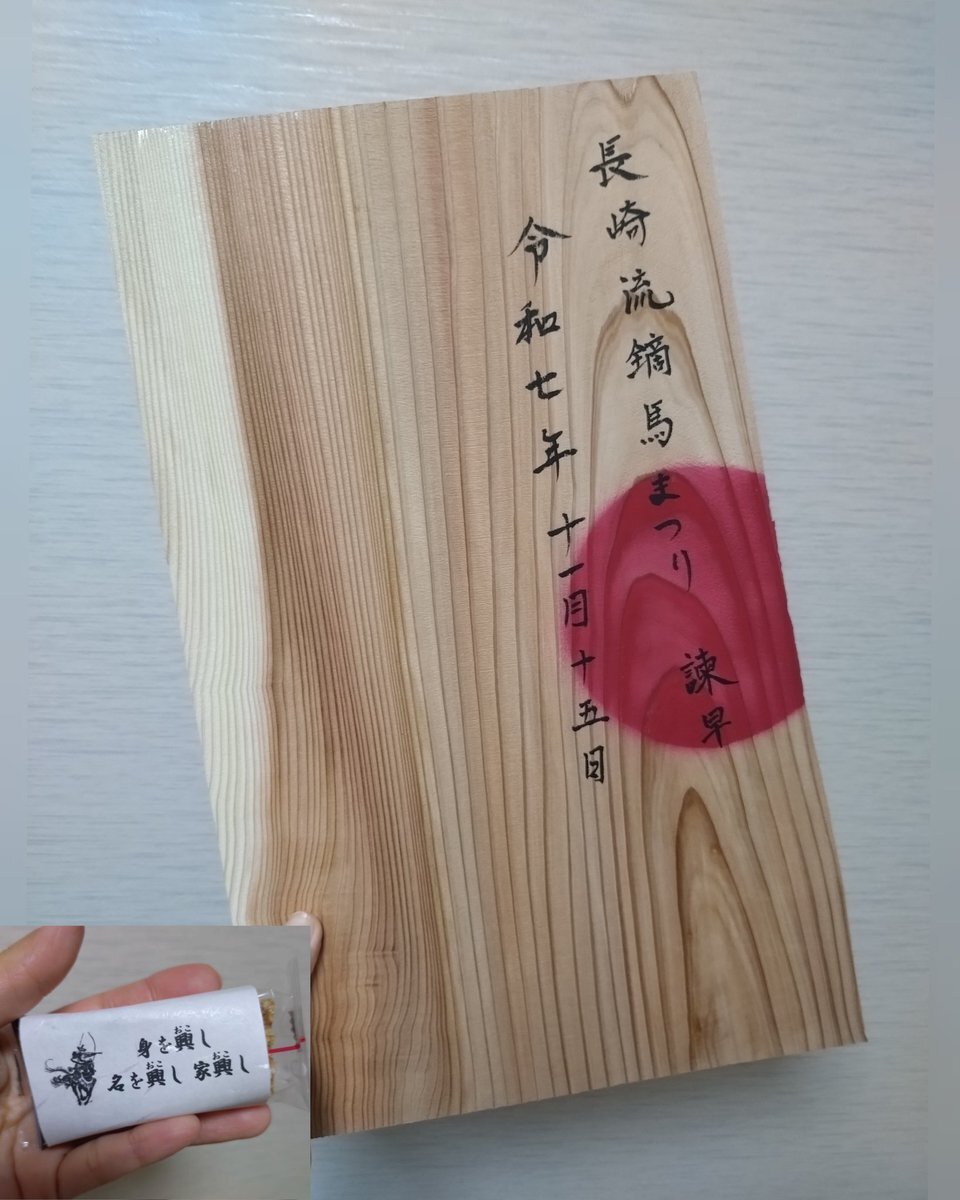 長崎流鏑馬まつり 諫早
令和七年 十一月十五日
身を興し
名を興し 家興し
おこ
おこ
おこ